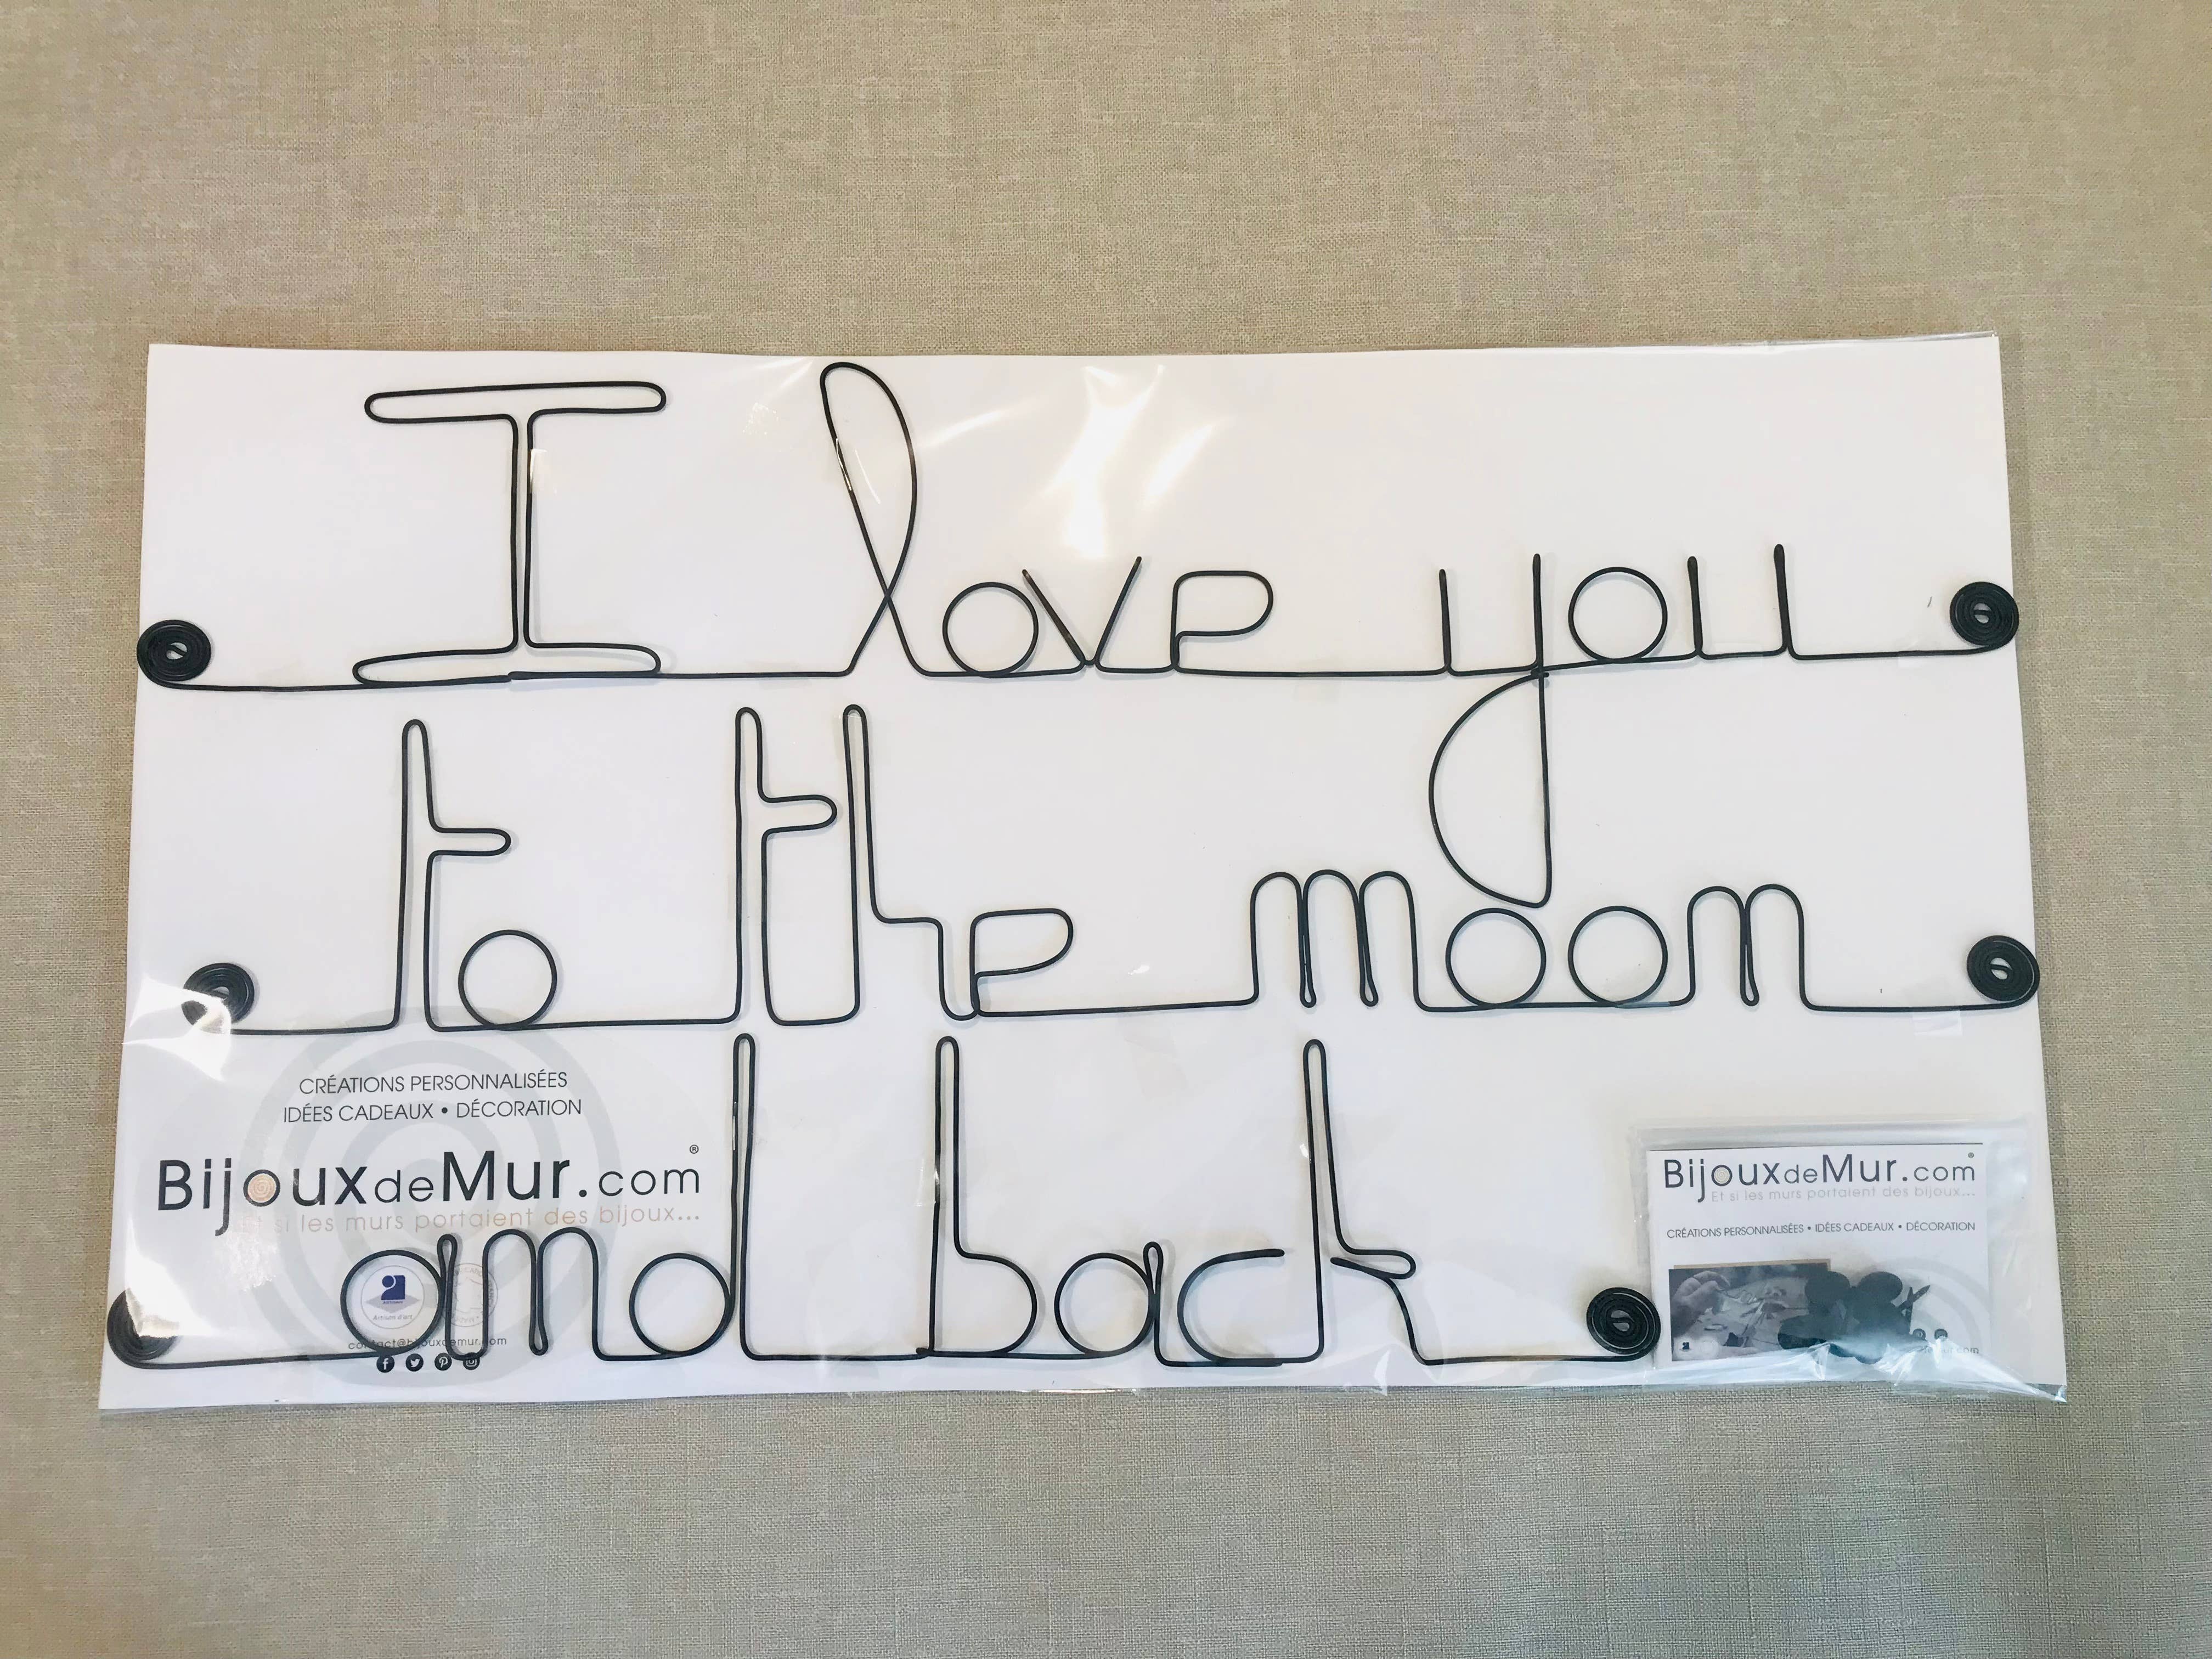 I love you
to the moon
CRÉATIONS PERSONNALISÉES
IDÉES CADEAUX • DÉCORATION
BijouxdeMur.com®
Et si les murs portaient des bijoux...
and back
Artisan d'art
contact@bijouxdemur.com
BijouxdeMur.com®
Et si les murs portaient des bijoux...
CRÉATIONS PERSONNALISÉES • IDÉES CADEAUX • DÉCORATION